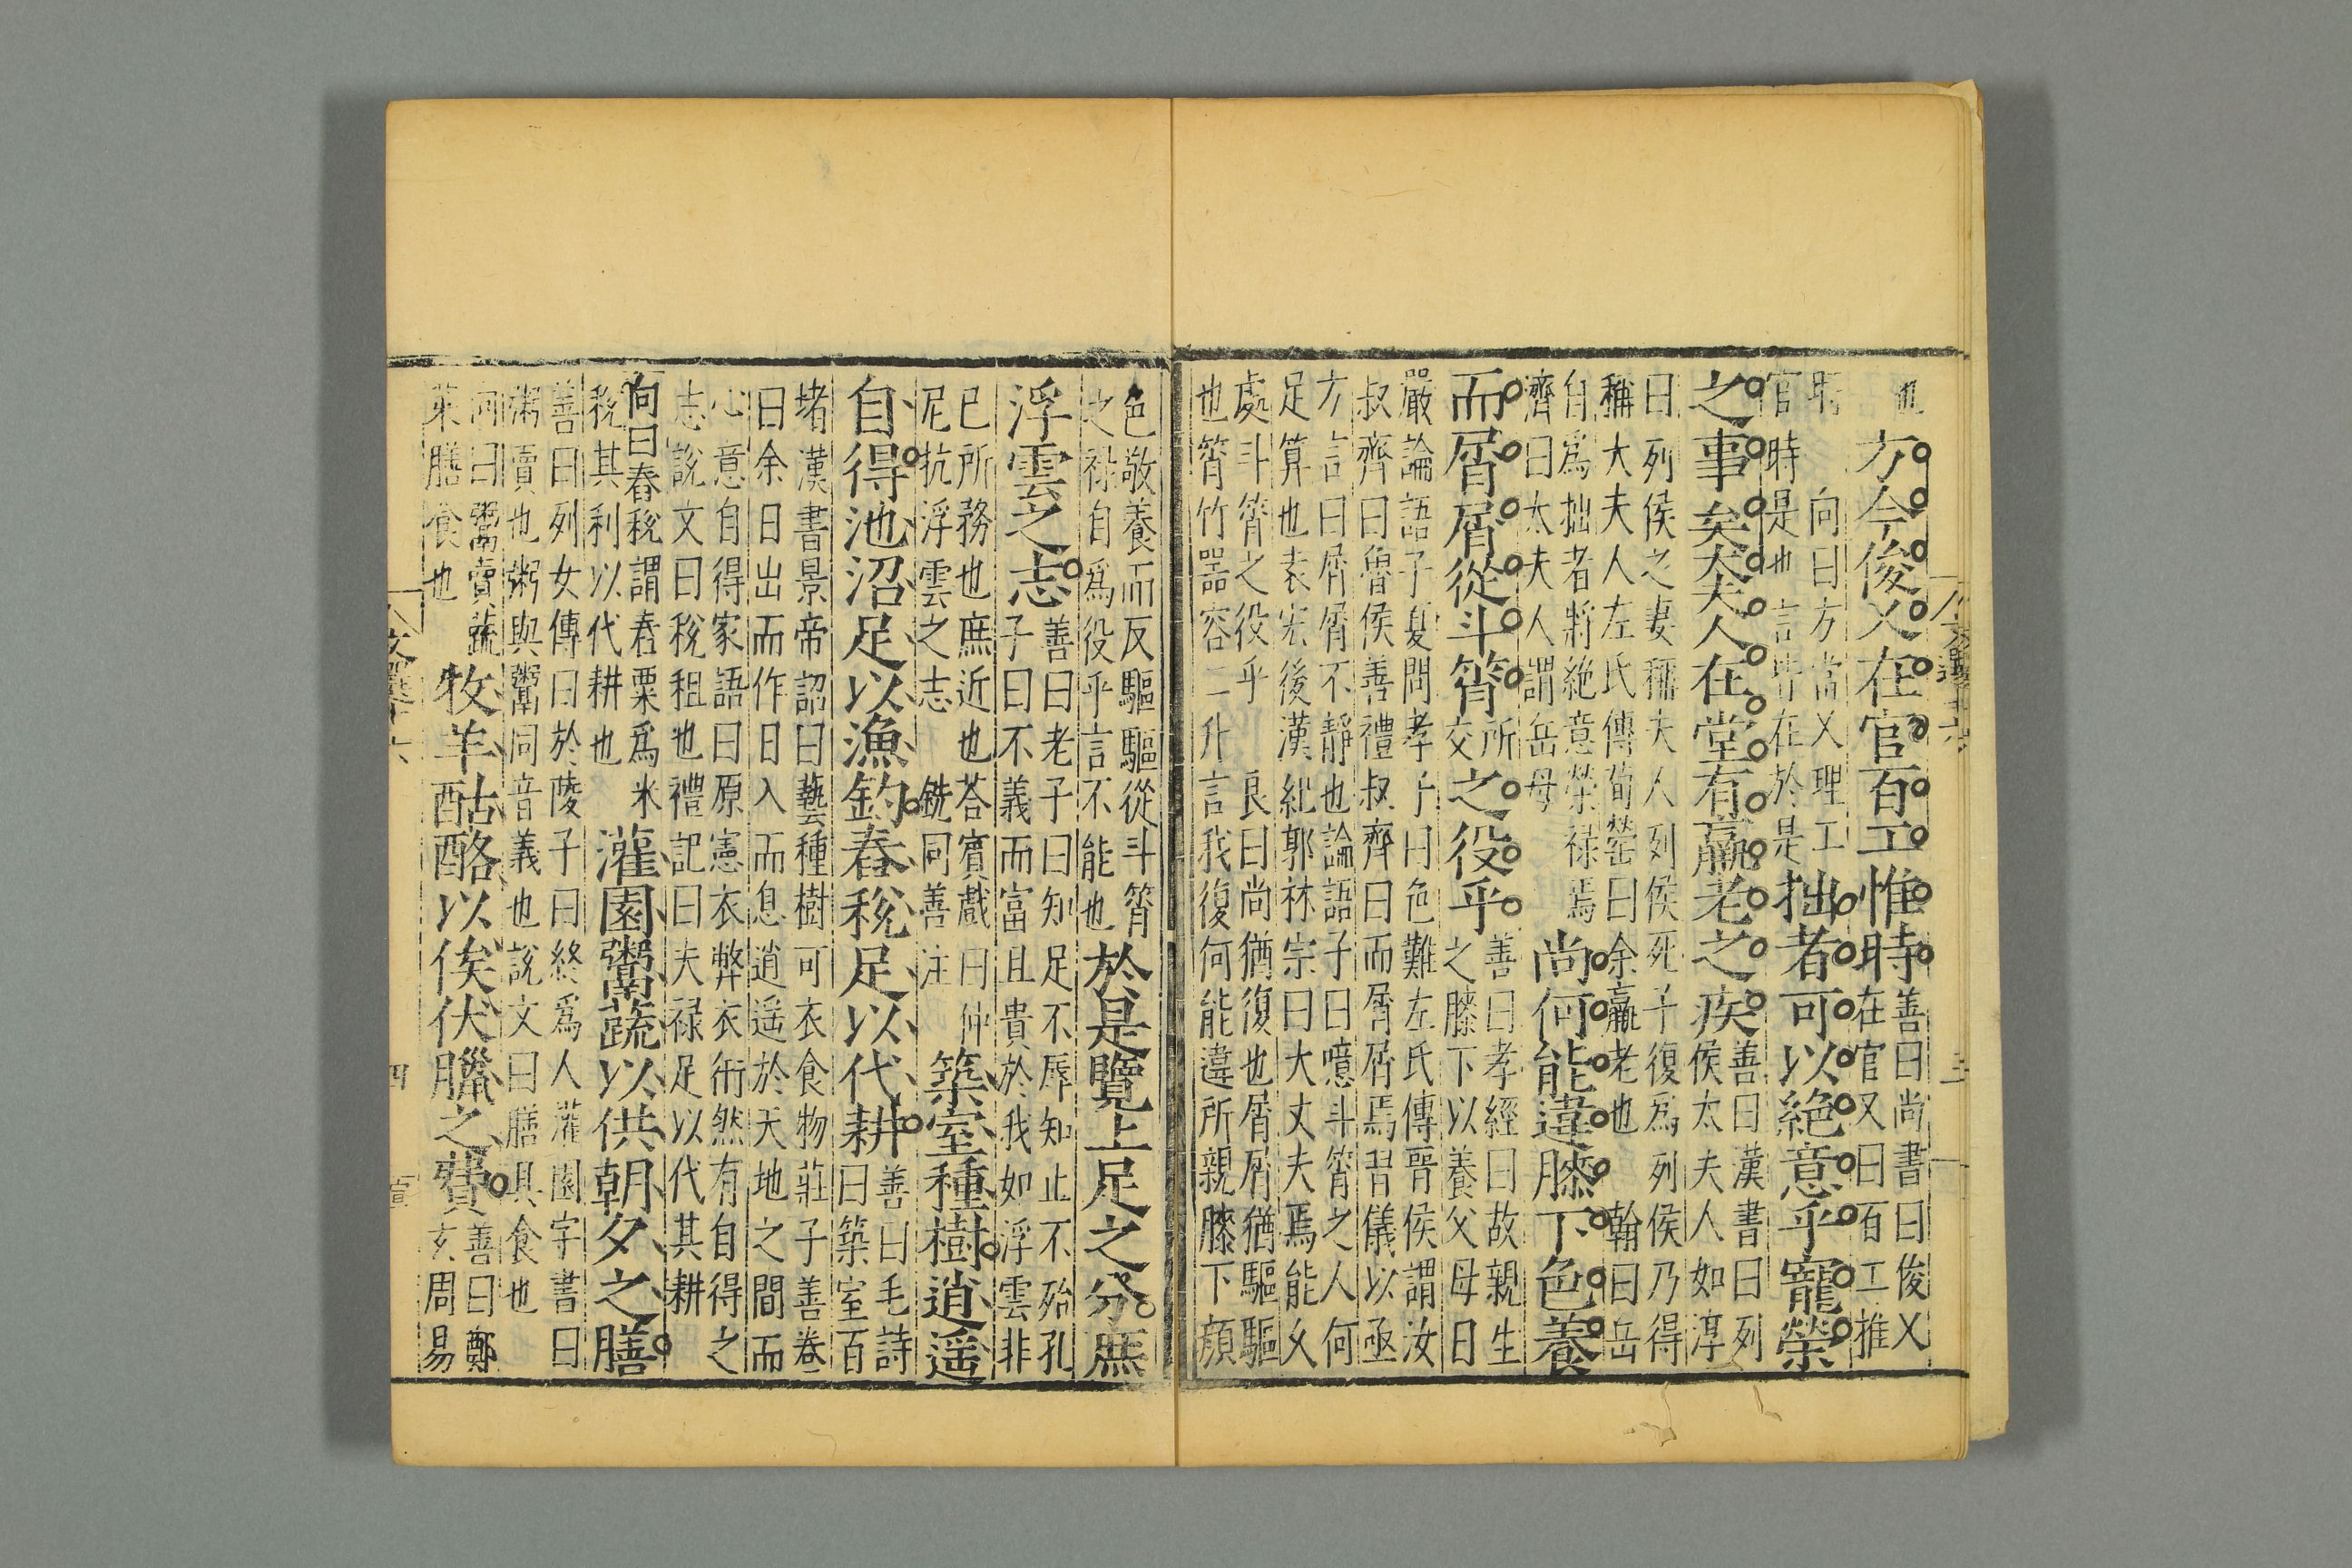 文選卷十六 三
也
方今俊乂在官百工惟時
善曰尚書曰俊乂
在官又曰百工推
時 向曰方當乂理工
官時是也言皆在於是
拙者可以絶意乎寵榮
之事矣太夫人在堂有羸老之疾
善曰漢書曰列
侯太夫人如淳
曰列侯之妻稱夫人列侯死子復爲列侯乃得
稱大夫人左氏傳荀罃曰余羸老也 翰曰岳
自爲拙者將絶意榮禄焉
濟曰太夫人謂岳母
尚何能違膝下色養
而屑屑從斗筲
所
交
之役乎
善曰孝經曰故親生
之膝下以養父母日
嚴論語子夏問孝子曰色難左氏傳晉侯謂汝
叔齊曰魯侯善禮叔齊曰而屑屑焉習儀以亟
方言曰屑屑不靜也論語子曰噫斗筲之人何
足算也袁宏後漢紀郭林宗曰大丈夫焉能久
處斗筲之役乎 良曰尚猶復也屑屑猶驅驅
也筲竹噐容二升言我復何能違所親膝下顔
色敬養而反驅驅從斗筲
之禄自爲役乎言不能也
於是覽止足之分庶
浮雲之志
善曰老子曰知足不辱知止不殆孔
子曰不義而富且貴於我如浮雲非
已所務也庶近也 荅賓戲曰仲
尼抗浮雲之志 銑同善注
築室種樹逍遥
自得池沼足以漁釣舂稅足以代耕
善曰毛詩
曰築室百
堵漢書景帝詔曰藝種樹可衣食物莊子善卷
曰余日出而作日入而息逍遥於天地之間而
心意自得家語曰原憲衣弊衣術然有自得之
志說文曰稅租也禮記曰夫禄足以代其耕
向曰舂稅謂舂粟爲米
稅其利以代耕也
灌園鬻蔬以供朝夕之膳
善曰列女傳曰於陵子曰終爲人灌園字書曰
粥賣也粥與鬻同音義也說文曰膳具食也
向曰鬻賣蔬
菜膳食也
牧羊酤酪以俟伏臘之費
善曰鄭
玄周易
文選卷十六 四